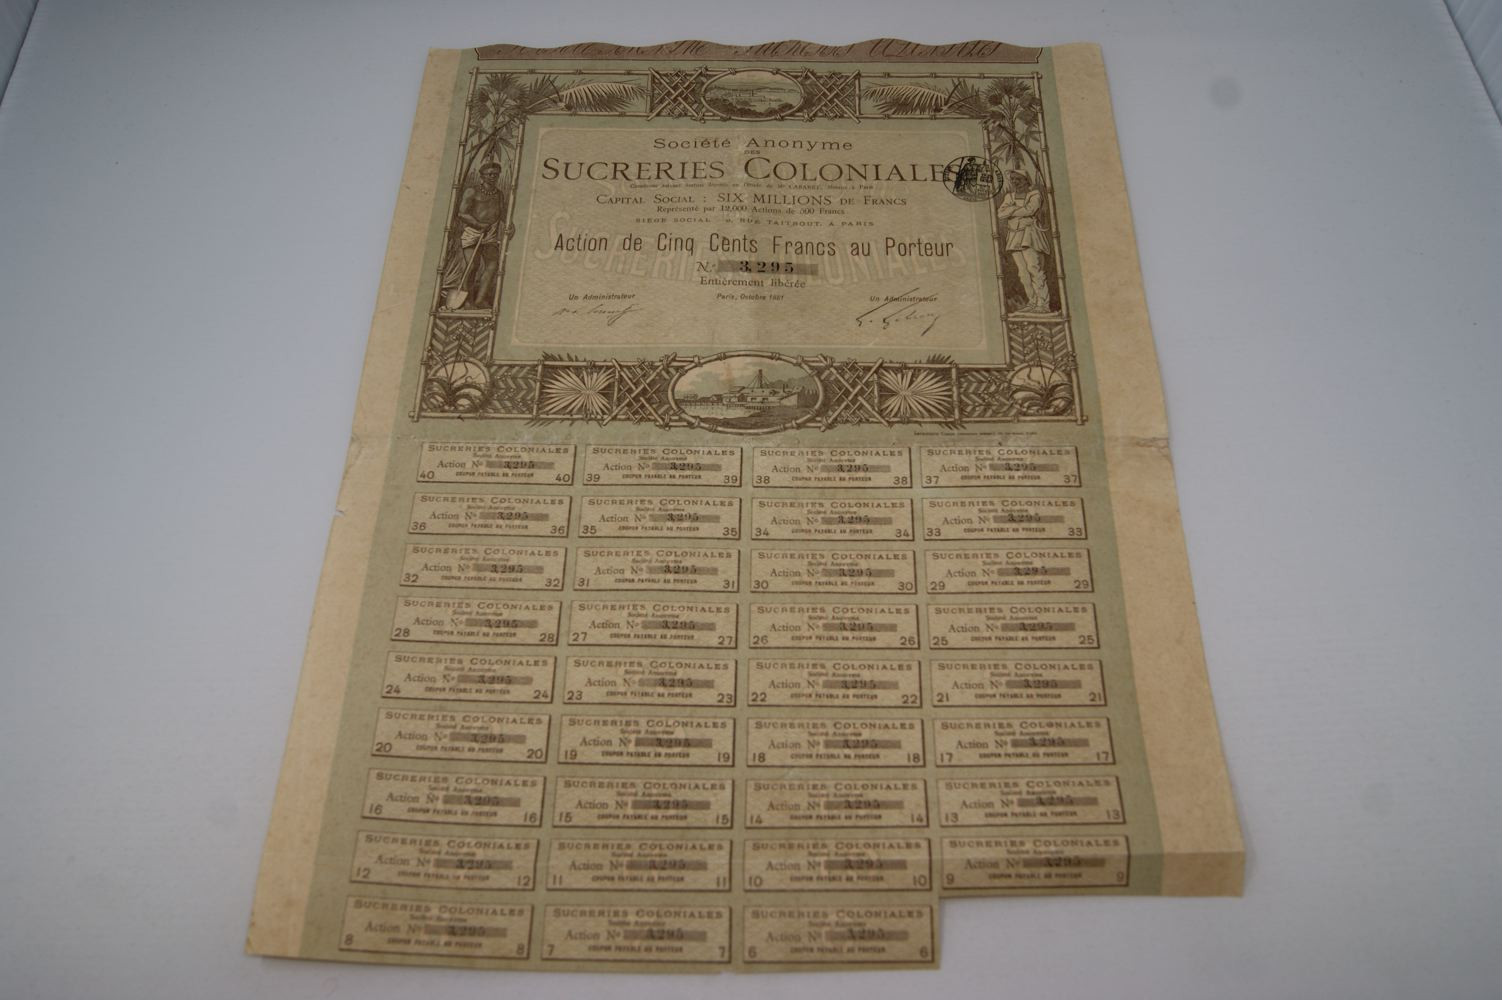 Société Anonyme
DES
SUCRERIES COLONIALES
CAPITAL SOCIAL : SIX MILLIONS DE FRANCS
Représenté par 12,000 Actions de 500 Francs
SIÈGE SOCIAL 9, RUE TAITBOUT, A PARIS
Action de Cinq Cents Francs au Porteur
N.º 3,295
Entièrement libérée
Un Administrateur Paris, Octobre 1881 Un Administrateur
SUCRERIES COLONIALES SUCRERIES COLONIALES SUCRERIES COLONIALES SUCRERIES COLONIALES
Société Anonyme Société Anonyme Société Anonyme Société Anonyme
Action Nº 3,295 Action Nº 3,295 Action Nº 3,295 Action Nº 3,295
40 COUPON PAYABLE AU PORTEUR 40 39 COUPON PAYABLE AU PORTEUR 39 38 COUPON PAYABLE AU PORTEUR 38 37 COUPON PAYABLE AU PORTEUR 37
SUCRERIES COLONIALES SUCRERIES COLONIALES SUCRERIES COLONIALES SUCRERIES COLONIALES
Société Anonyme Société Anonyme Société Anonyme Société Anonyme
Action Nº 3,295 Action Nº 3,295 Action Nº 3,295 Action Nº 3,295
36 COUPON PAYABLE AU PORTEUR 36 35 COUPON PAYABLE AU PORTEUR 35 34 COUPON PAYABLE AU PORTEUR 34 33 COUPON PAYABLE AU PORTEUR 33
SUCRERIES COLONIALES SUCRERIES COLONIALES SUCRERIES COLONIALES SUCRERIES COLONIALES
Société Anonyme Société Anonyme Société Anonyme Société Anonyme
Action Nº 3,295 Action Nº 3,295 Action Nº 3,295 Action Nº 3,295
32 COUPON PAYABLE AU PORTEUR 32 31 COUPON PAYABLE AU PORTEUR 31 30 COUPON PAYABLE AU PORTEUR 30 29 COUPON PAYABLE AU PORTEUR 29
SUCRERIES COLONIALES SUCRERIES COLONIALES SUCRERIES COLONIALES SUCRERIES COLONIALES
Société Anonyme Société Anonyme Société Anonyme Société Anonyme
Action Nº 3,295 Action Nº 3,295 Action Nº 3,295 Action Nº 3,295
28 COUPON PAYABLE AU PORTEUR 28 27 COUPON PAYABLE AU PORTEUR 27 26 COUPON PAYABLE AU PORTEUR 26 25 COUPON PAYABLE AU PORTEUR 25
SUCRERIES COLONIALES SUCRERIES COLONIALES SUCRERIES COLONIALES SUCRERIES COLONIALES
Société Anonyme Société Anonyme Société Anonyme Société Anonyme
Action Nº 3,295 Action Nº 3,295 Action Nº 3,295 Action Nº 3,295
24 COUPON PAYABLE AU PORTEUR 24 23 COUPON PAYABLE AU PORTEUR 23 22 COUPON PAYABLE AU PORTEUR 22 21 COUPON PAYABLE AU PORTEUR 21
SUCRERIES COLONIALES SUCRERIES COLONIALES SUCRERIES COLONIALES SUCRERIES COLONIALES
Société Anonyme Société Anonyme Société Anonyme Société Anonyme
Action Nº 3,295 Action Nº 3,295 Action Nº 3,295 Action Nº 3,295
20 COUPON PAYABLE AU PORTEUR 20 19 COUPON PAYABLE AU PORTEUR 19 18 COUPON PAYABLE AU PORTEUR 18 17 COUPON PAYABLE AU PORTEUR 17
SUCRERIES COLONIALES SUCRERIES COLONIALES SUCRERIES COLONIALES SUCRERIES COLONIALES
Société Anonyme Société Anonyme Société Anonyme Société Anonyme
Action Nº 3,295 Action Nº 3,295 Action Nº 3,295 Action Nº 3,295
16 COUPON PAYABLE AU PORTEUR 16 15 COUPON PAYABLE AU PORTEUR 15 14 COUPON PAYABLE AU PORTEUR 14 13 COUPON PAYABLE AU PORTEUR 13
SUCRERIES COLONIALES SUCRERIES COLONIALES SUCRERIES COLONIALES SUCRERIES COLONIALES
Société Anonyme Société Anonyme Société Anonyme Société Anonyme
Action Nº 3,295 Action Nº 3,295 Action Nº 3,295 Action Nº 3,295
12 COUPON PAYABLE AU PORTEUR 12 11 COUPON PAYABLE AU PORTEUR 11 10 COUPON PAYABLE AU PORTEUR 10 9 COUPON PAYABLE AU PORTEUR 9
SUCRERIES COLONIALES SUCRERIES COLONIALES SUCRERIES COLONIALES
Société Anonyme Société Anonyme Société Anonyme
Action Nº 3,295 Action Nº 3,295 Action Nº 3,295
8 COUPON PAYABLE AU PORTEUR 8 7 COUPON PAYABLE AU PORTEUR 7 6 COUPON PAYABLE AU PORTEUR 6